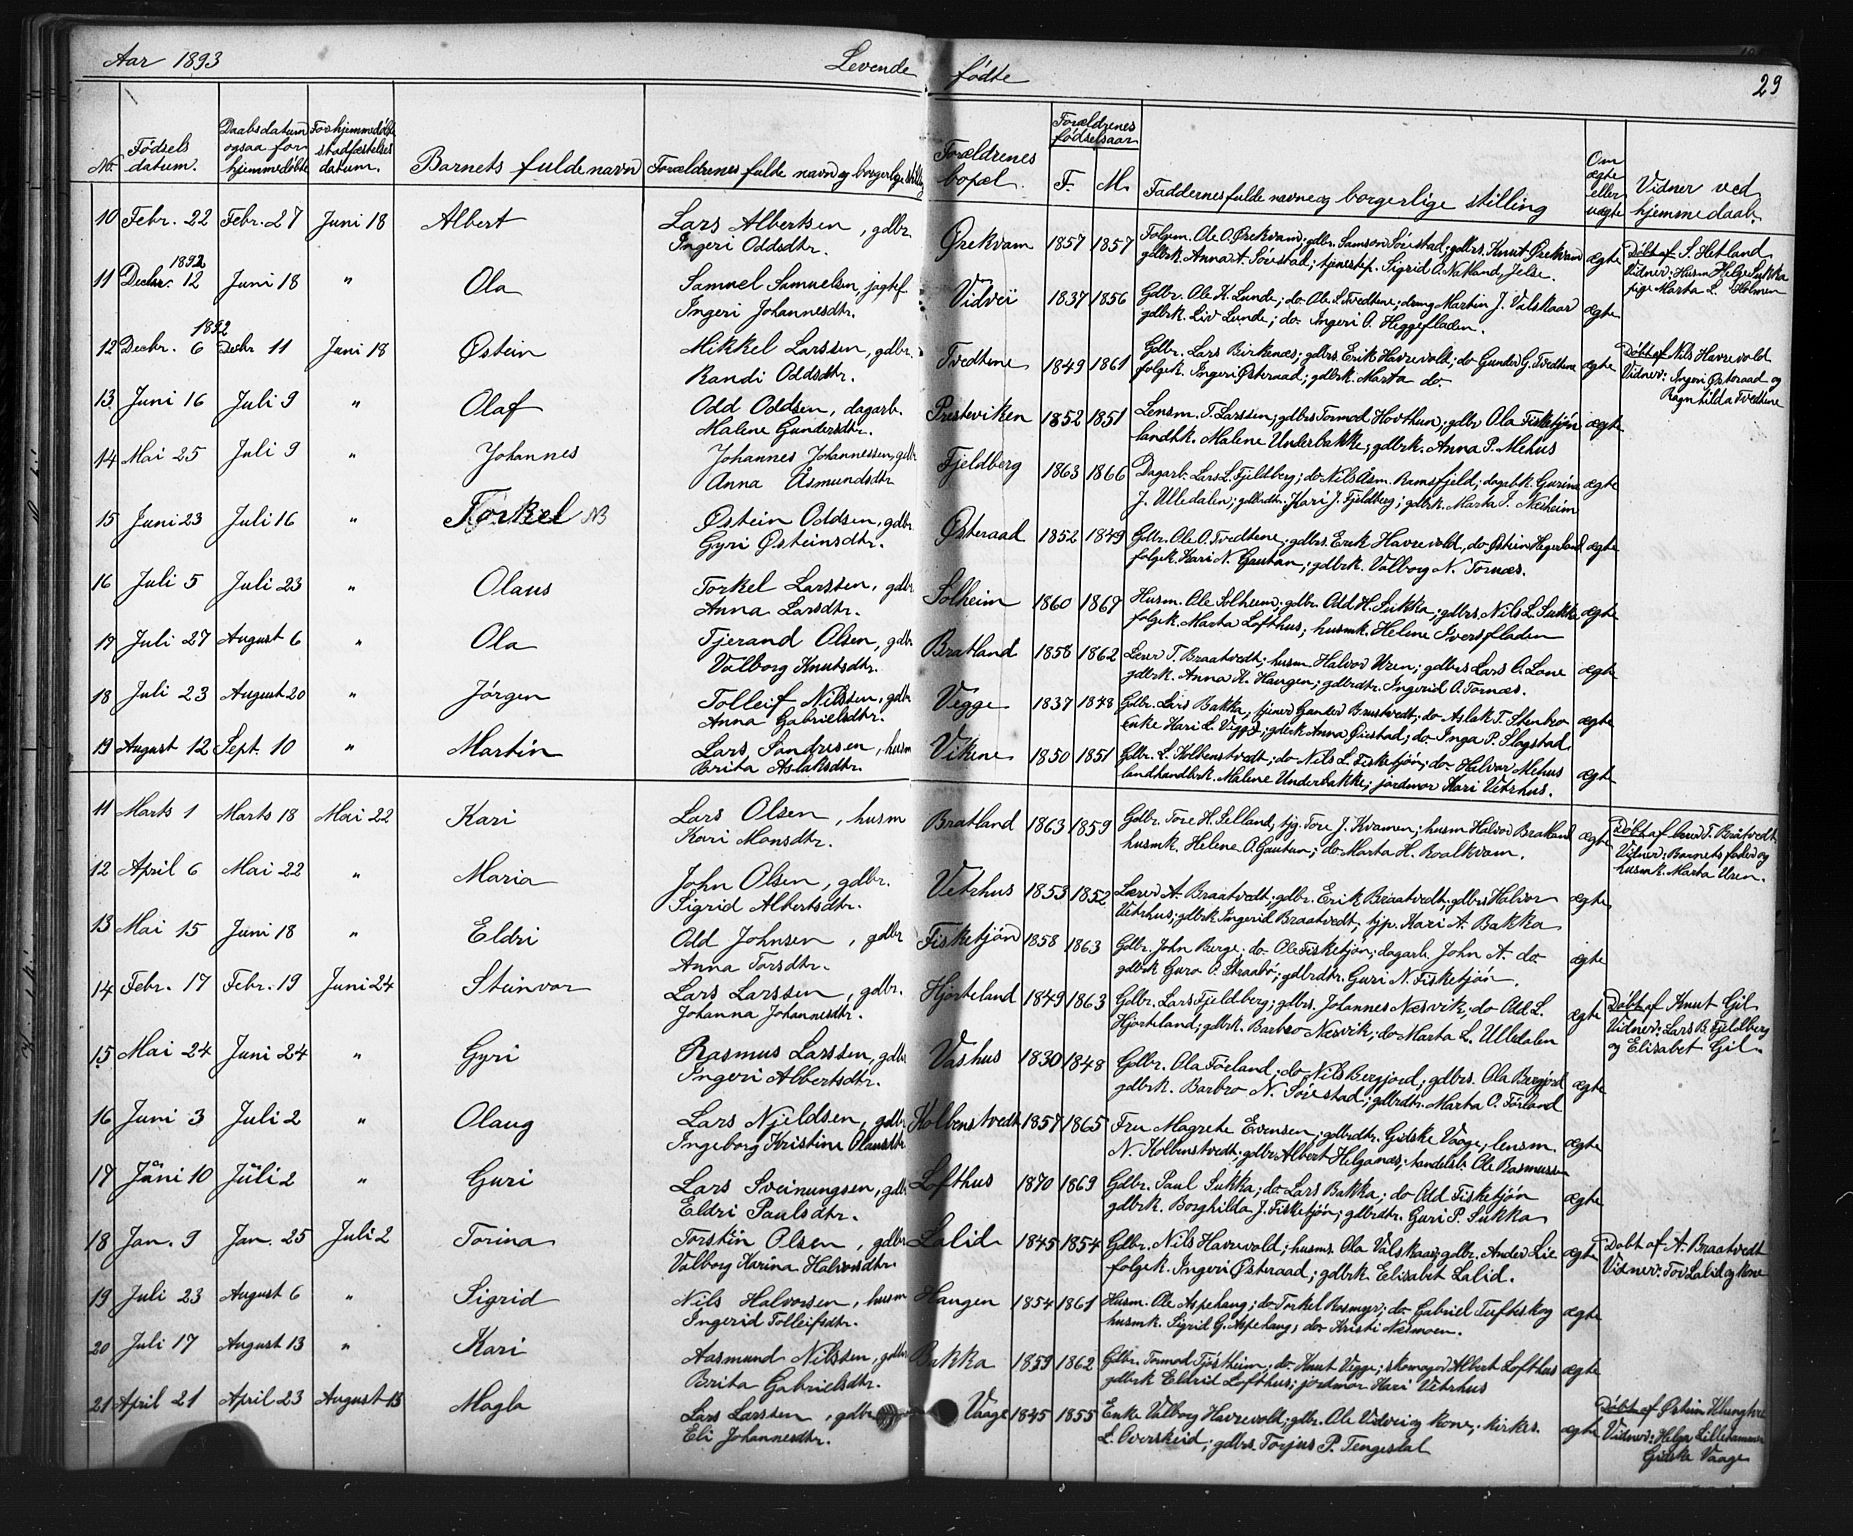 Aar 1893 Levende fødte 29
No. Fødsels datum. Daabsdatum ogsaa for hjemmedøbte For hjemmedøbte stadfæstelses datum. Barnets fulde navn Forældrenes fulde navn og borgerlige stilling Forældrenes bopæl. Forældrenes fødselsaar F. M. Faddernes fulde navne og borgerlige stilling Om ægte eller uægte Vidner ved hjemmedaab.
10 Febr. 22 Febr. 27 Juni 18 Albert Lars Albertsen, gdbr. Ørekvam 1857 1857 Folgem. Ole O. Ørekvam; gdbr. Samson Sørestad; gdbrs. Knut Ørekvam ægte Døbt af S. Hetland
Ingeri Oddsdtr. gdbrk. Anna A. Sørestad; tjenestep. Sigrid O. Netland, Jelse. Vidner: Husm Helge Sukka
pige Marta L. Holmen
1892
11 Decbr. 12 Juni 18 " Ola Samuel Samuelsen, jagtef. Vidvei 1837 1856 Gdbr. Ole K. Lunde; do Ole S. Tvedtene; dreng Martin J. Valskaar ægte
Ingeri Johannesdtr. gdbrk. Liv Lunde; do Ingeri O. Heggefladen.
1892
12 Decbr. 6 Decbr 11 Juni 18 Østein Mikkel Larssen, gdbr. Tvedtene 1849 1861 Gdbr. Lars Birkenæs; gdbrs. Erik Havrevold; do Gunder G. Tvedtene ægte Døbt af Nils Havrevold
Randi Oddsdtr. folgek. Ingeri Østeraad; gdbrk. Marta do Vidner: Ingeri Østeraad og
Ragnhilda Tvedtene
13 Juni 16 Juli 9 " Olaf Odd Oddsen, dagarb. Presteviken 1852 1851 Lensm. T. Larssen; gdbrs Tormod Hovthun; gdbr Ola Fisketjøn ægte
Malene Gundersdtr. landhk. Malene Underbakke; gdbrk. Anna P. Mehus
14 Mai 25 Juli 9 " Johannes Johannes Johannessen, gdbr Fjeldberg 1863 1866 Dagarb. Lars L. Fjeldberg; do Nils Asm. Ramsfjeld; dagarbk. Gurina ægte
Anna Åsmundsdtr J. Ulledalen; gdbrdtr. Kari J. Fjeldberg; gdbrk. Marta I. Næsheim
15 Juni 23 Juli 16 " Torkel NB Østein Oddsen, gdbr. Østeraad 1852 1849 Gdbr. Ole O. Tvedtene; gdbrs. Erik Havrevold, do Østein Hegerland ægte
Gyri Østeinsdtr. folgek. Kari N. Gautun; gdbrk. Valborg N. Tornæs.
16 Juli 5 Juli 23 " Olaus Torkel Larssen, gdbr Solheim 1860 1867 Husm. Ole Solheim; gdbr. Odd H. Sukka; gdbrs. Nils L. Sukka ægte
Anna Larsdtr. folgek. Marta Lofthus; husmk. Helene Iversfladen
17 Juli 27 August 6 " Ola Tjerand Olsen, gdbr Bratland 1858 1862 Lærer T. Braatvedt; husm Halvor Uren; gdbrs Lars O. Lone ægte
Valborg Knutsdtr. gdbrk. Anna K. Haugen; gdbrdtr. Ingerid O. Tornæs.
18 Juli 23 August 20 " Jørgen Tolleif Nilssen, gdbr Vegge 1837 1848 Gdbr. Lars Bakka, tjener Gunder Braatvedt; do Aslak T. Stenbro ægte
Anna Gabrielsdtr. Enke Kari L. Vegge; gdbrk Anna Øiestad; do Inga P. Slagstad
19 August 12 Sept. 10 " Martin Lars Sandresen, husm Vikene 1850 1851 Gdbr. L. Kolbenstvedt; do Nils L. Fisketjøn; do Halvor Mehus ægte
Brita Aslaksdtr. landhandlerk. Malene Underbakke; jordmor Kari Vetrhus.
11 Marts 1 Marts 18 Mai 22 Kari Lars Olsen, husm Bratland 1863 1859 Gdbr. Tore H. Selland, tjg. Tore J. Kvamen; husm Halvor Bratland ægte Døbt af lærer T. Braatvedt
Kari Monsdtr. husmk. Helene O. Gautun; do Marta H. Roalkvam. Vidner: Barnets fader og
husmk. Marta Uren.
12 April 6 Mai 22 " Maria John Olsen, gdbr. Vetrhus 1853 1852 Lærer A. Braatvedt; gdbr. Erik Braatvedt. gdbrs Halvor ægte
Sigrid Albertsdtr. Vetrhus; gdbrk Ingerid Braatvedt, tjp. Kari A. Bakka
13 Mai 15 Juni 18 " Eldri Odd Johnsen, gdbr Fisketjøn 1858 1863 Gdbr. John Berge; do Ole Fisketjøn; dagarb. John A. do ægte
Anna Torsdtr. gdbrk Guro O. Straabø; gdbrdtr. Guri N. Fisketjøn.
14 Febr. 17 Febr. 19 Juni 24 Steinvor Lars Larssen, gdbr. Hjorteland 1849 1863 Gdbr. Lars Fjeldberg; gdbrs. Johannes Næsvik, do Odd L. ægte Døbt af Knut Gil
Johanna Johannesdtr. Hjorteland; gdbrk. Barbro Næsvik; do Marta L. Ulledalen Vidner: Lars B. Fjeldberg
og Elisabet Gil.
15 Mai 24 Juni 24 " Gyri Rasmus Larssen, gdbr Vashus 1830 1848 Gdbr. Ola Førland; do Nils Bergjord; gdbrs. Ola Bergjord ægte
Ingeri Albertsdtr. gdbrk. Barbro N. Sørestad; gdbrdtr. Marta O. Førland
16 Juni 3 Juli 2 " Olaug Lars Njeldsen, gdbr Kolbenstvedt 1857 1865 Fru Magrete Evensen, gdbrdtr. Gidske Vaage, lensm. ægte
Ingeborg Kristine Olausdtr N. Kolbenstvedt; gdbr. Albert Helganæs; handelsb. Ole Rasmussen
17 Juni 10 Juli 2 " Guri Lars Sveinungsen, gdbr Lofthus 1870 1869 Gdbr. Paul Sukka; do Lars Bakka; do Odd Fisketjøn ægte
Eldri Paulsdtr. gdbrk. Borghilda J. Fisketjøn; gdbrdtr. Guri P. Sukka
18 Jan. 9 Jan. 25 Juli 2 Torina Torstein Olsen, gdbr Lalid 1845 1854 Gdbr. Nils Havrevold; husms. Ola Valskaar; gdbr. Anders Lie ægte Døbt af A. Braatvedt
Valborg Karina Halvorsdtr. folgek. Ingeri Østeraad; gdbrk Elisabet Lalid. Vidner: Tor Lalid og kone
19 Juli 23 August 6 " Sigrid Nils Halvorsen, husm Haugen 1854 1861 Husm. Ole Aspehaug; do Torkel Rosmyr; do Gabriel Tufteskog ægte
Ingerid Tolleifsdtr. husmk. Sigrid G. Aspehaug, do Kristi Næsmoen.
20 Juli 17 August 13 " Kari Aasmund Nilssen, gdbr Bakka 1859 1862 Gdbr. Tormod Tjøstheim; do Knut Vegge; skomager Albert Lofthus ægte
Brita Gabrielsdtr. gdbrk Eldrid Lofthus; jordmor Kari Vetrhus
21 April 21 April 23 August 13 Magla Lars Larssen, gdbr Vaage 1845 1855 Enke Valborg Havrevold; gdbr. Ole Vidvei og kone; kirkes. ægte Døbt af Østein
Eli Johannesdtr. L. Overskeid; gdbrs. Torjus P. Tengesdal Vidner: Helga Lillehammer
Gidske Vaage